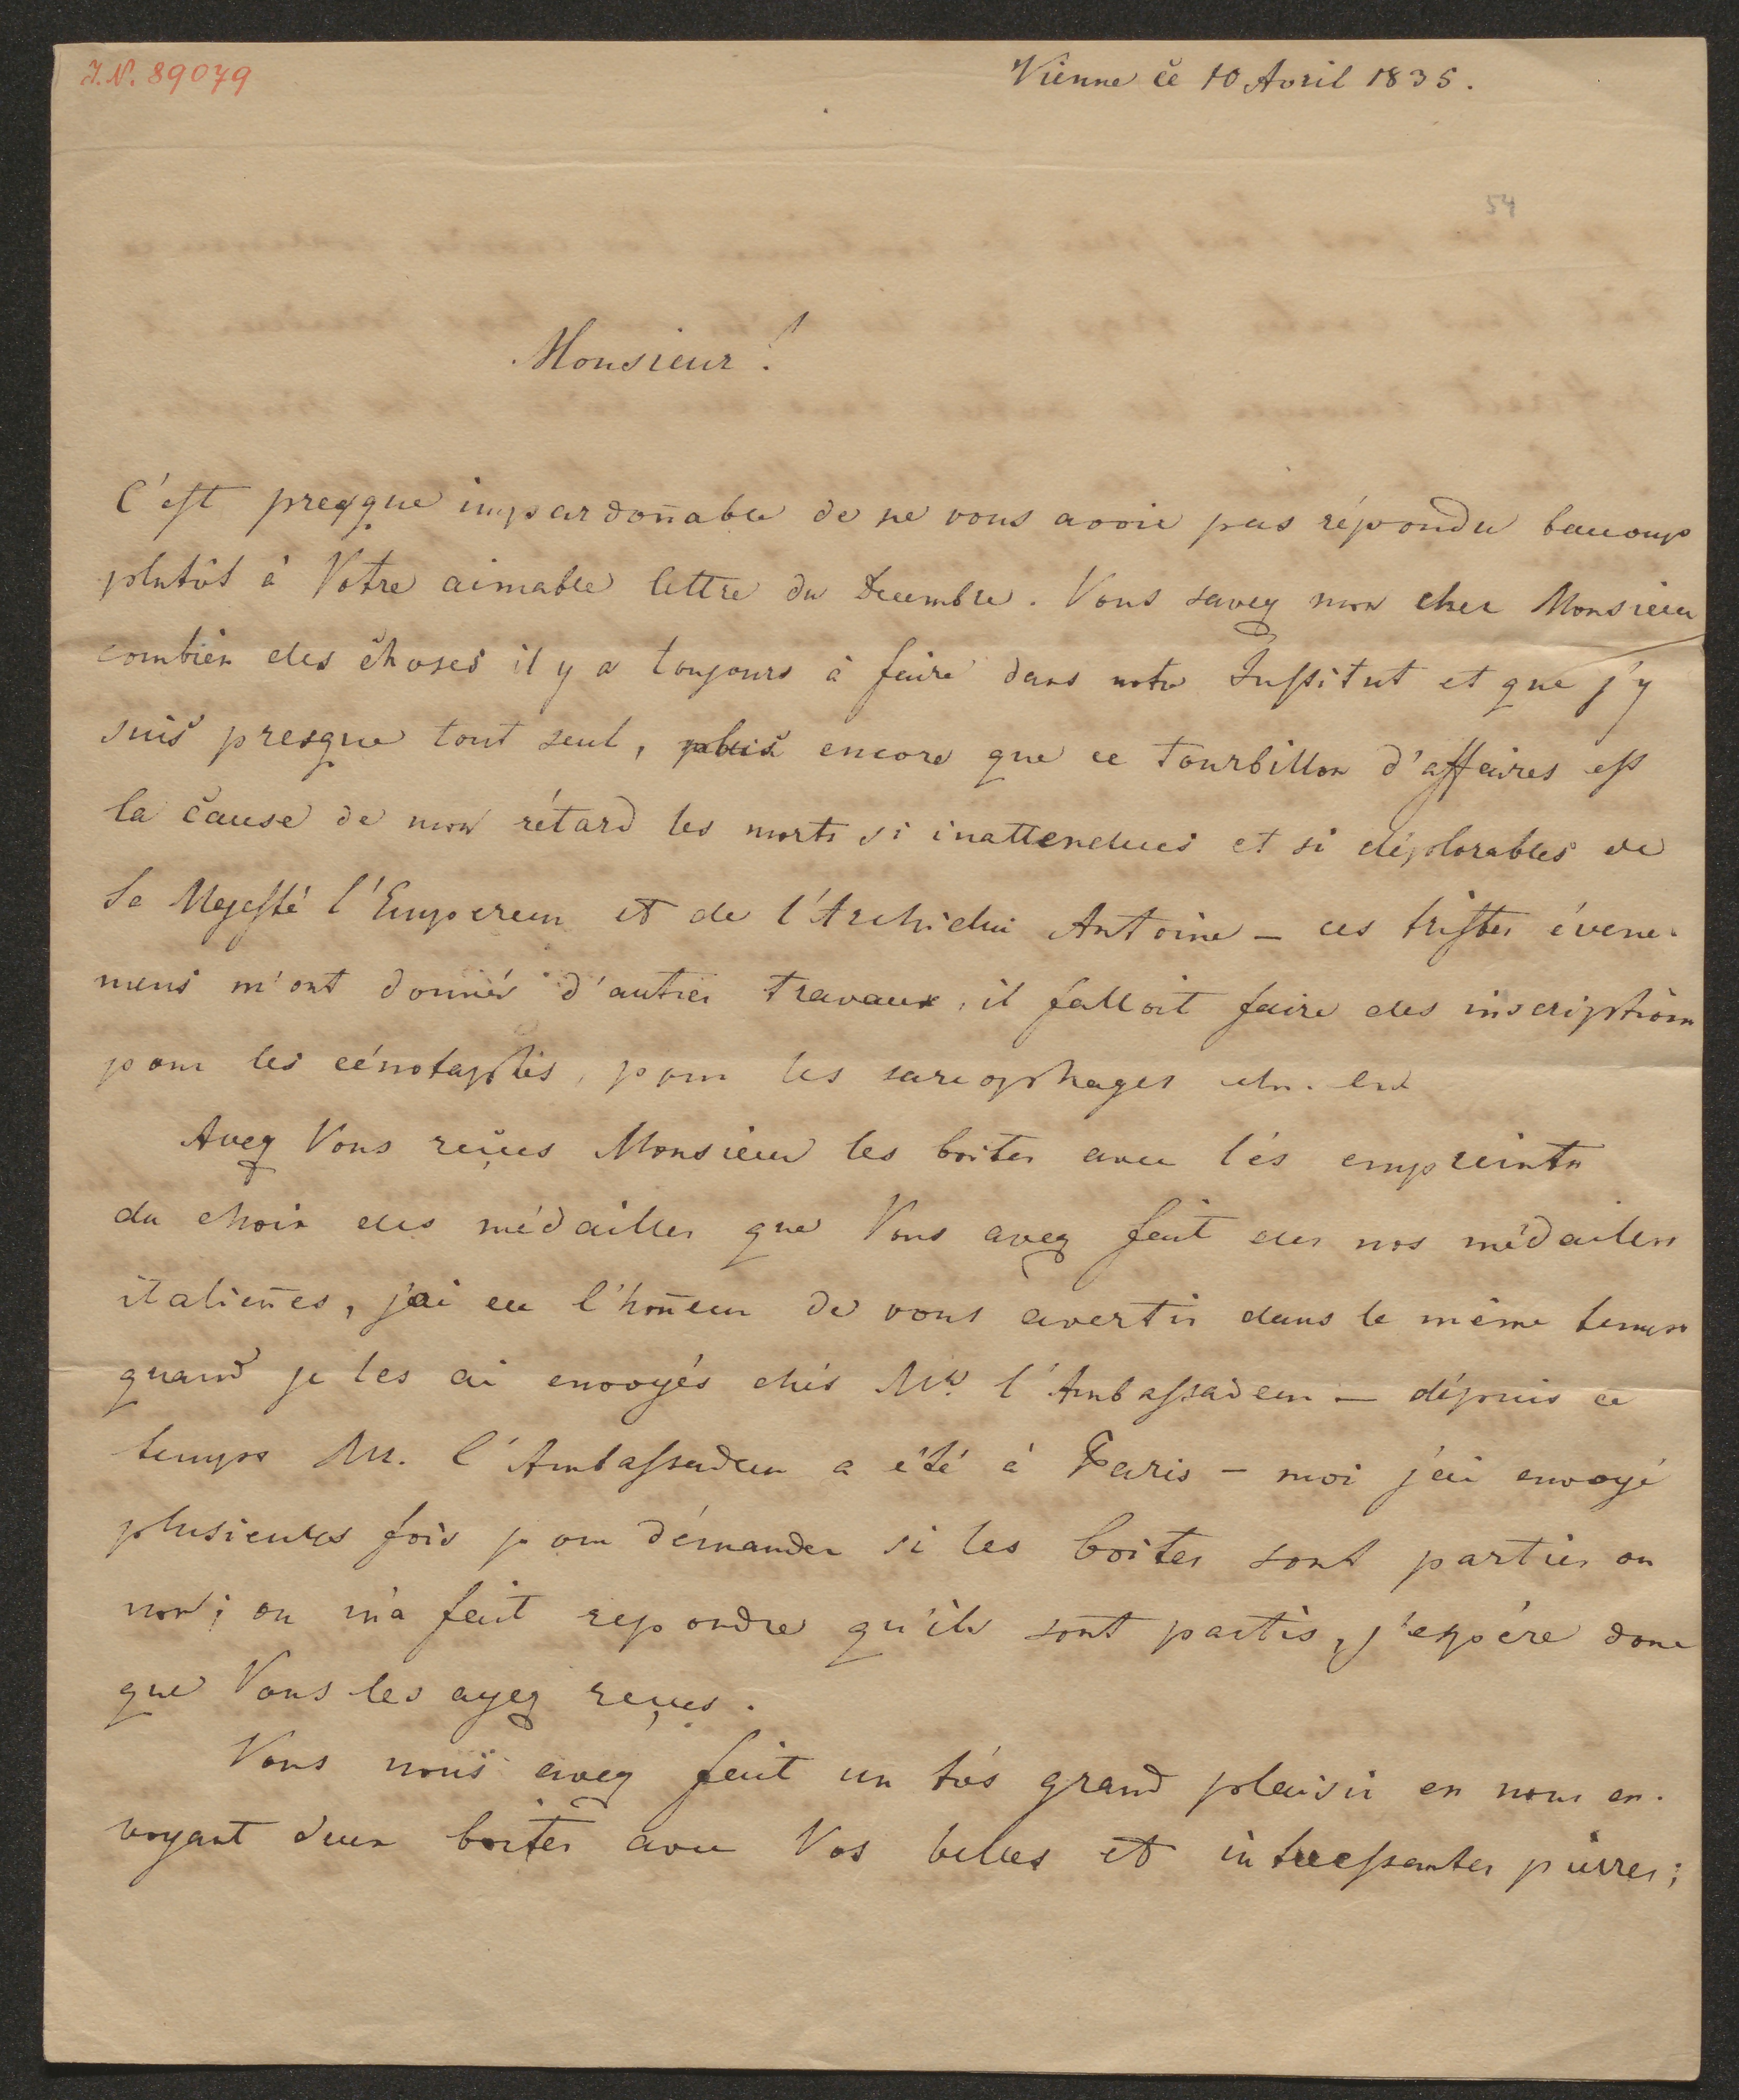 J.N. 89079
Vienne ce 10 Avril 1835.
54
Monsieur!
C'est presque impardoñable de ne vous avoir pas répondu baucoup
plutôt à Votre aimable lettre du Decembre. Vous savez mon cher Monsieur
combien des choses il y a toujours à faire dans notre Institut et que j'y
suis presque tout seul, plus encore que ce tourbillon d'affaires est
la cause de mon rétard les morts si inattendues et si déplorables de
Sa Majesté l'Empereur et de l'Archiduc Antoine – ces tristes évene-
mens m'ont donnés d'autres travaux, il falloit faire des inscriptions
pour les cénotaphes, pour les sarcophages etc. etc
Avez Vous reçues Monsieur les boites avec les empreintes
du choix des médailles que Vous avez fait des nos médailles
italieñes, j'ai eu l'hoñeur de vous avertir dans le même temps
quand je les ai envoyés chés Mr. l'Ambassadeur – dépuis ce
temps Mr. l'Ambassadeur a été à Paris – moi j'ai envoyé
plusieurs fois pour démander si les boites sont parties ou
non; on m'a fait repondre qu'ils sont partis, j'espére donc
que Vous les ayez reçues.
Vous nous avez fait un trés grand plaisir en nous en-
voyant deux boites avec Vos belles et interessantes pierres;